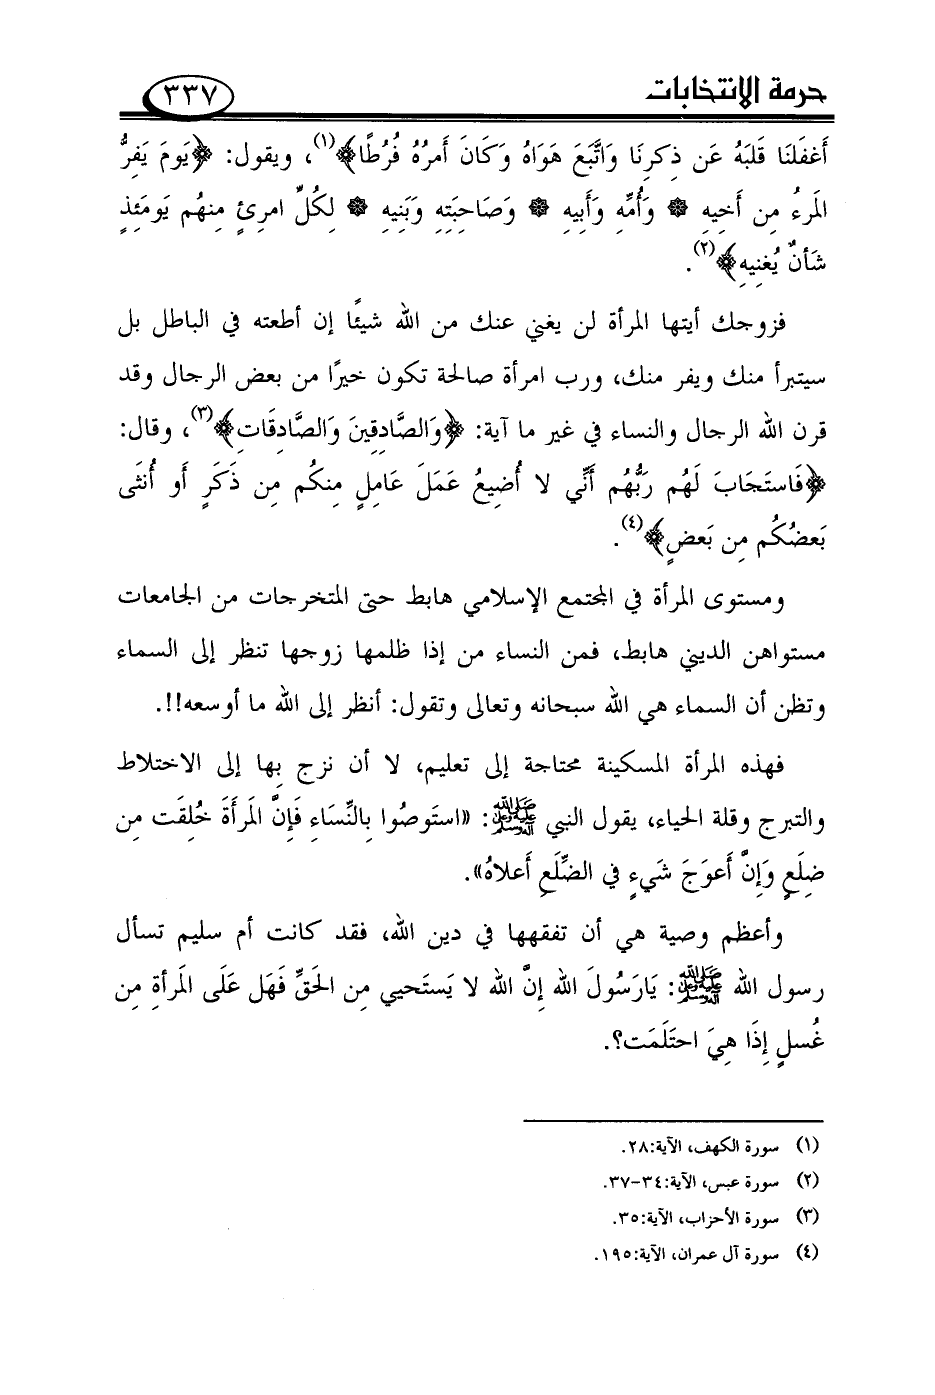 حرمة الانتخابات ٣٣٧
أَغفَلنَا قَلبَهُ عَن ذِكرِنَا وَاتَّبَعَ هَوَاهُ وَكَانَ أَمرُهُ فُرُطًا﴾(١)، ويقول: ﴿يَومَ يَفِرُّ
المَرءُ مِن أَخِيهِ * وَأُمِّهِ وَأَبِيهِ * وَصَاحِبَتِهِ وَبَنِيهِ * لِكُلِّ امرِئٍ مِنهُم يَومَئِذٍ
شَأنٌ يُغنِيهِ﴾(٢).
فزوجك أيتها المرأة لن يغني عنك من الله شيئًا إن أطعته في الباطل بل
سيتبرأ منك ويفر منك، ورب امرأة صالحة تكون خيرًا من بعض الرجال وقد
قرن الله الرجال والنساء في غير ما آية: ﴿وَالصَّادِقِينَ وَالصَّادِقَاتِ﴾(٣)، وقال:
﴿فَاستَجَابَ لَهُم رَبُّهُم أَنِّي لا أُضِيعُ عَمَلَ عَامِلٍ مِنكُم مِن ذَكَرٍ أَو أُنثَى
بَعضُكُم مِن بَعضٍ﴾(٤).
ومستوى المرأة في المجتمع الإسلامي هابط حتى المتخرجات من الجامعات
مستواهن الديني هابط، فمن النساء من إذا ظلمها زوجها تنظر إلى السماء
وتظن أن السماء هي الله سبحانه وتعالى وتقول: أنظر إلى الله ما أوسعه!!.
فهذه المرأة المسكينة محتاجة إلى تعليم، لا أن نزج بِها إلى الاختلاط
والتبرج وقلة الحياء، يقول النبي ﷺ: «استَوصُوا بِالنِّسَاءِ فَإِنَّ المَرأَةَ خُلِقَت مِن
ضِلَعٍ وَإِنَّ أَعوَجَ شَيءٍ فِي الضِّلَعِ أَعلاهُ».
وأعظم وصية هي أن تفقهها في دين الله، فقد كانت أم سليم تسأل
رسول الله ﷺ: يَارَسُولَ الله إِنَّ الله لا يَستَحيِي مِن الحَقِّ فَهَل عَلَى المَرأةِ مِن
غُسلٍ إِذَا هِيَ احتَلَمَت؟.
(١) سورة الكهف، الآية:٢٨.
(٢) سورة عبس، الآية:٣٤-٣٧.
(٣) سورة الأحزاب، الآية:٣٥.
(٤) سورة آل عمران، الآية:١٩٥.